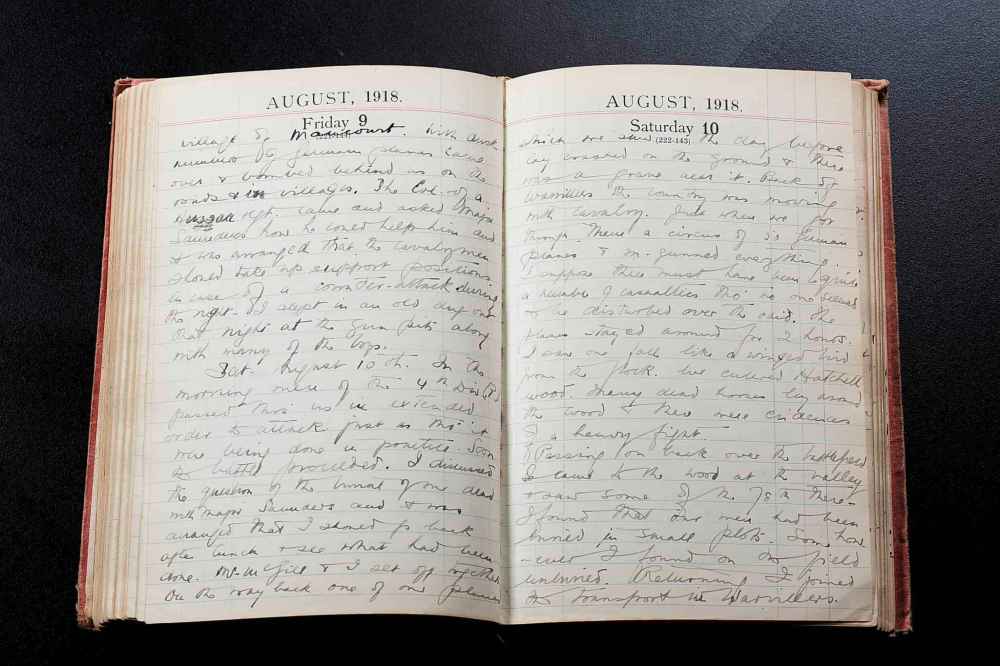 AUGUST, 1918.
Friday 9
village of With dusk
number of German planes came
over & bombed behind us on the
roads & in villages. The Col. of a
regt. came and asked Major
Saunders how he could help him and
it was arranged that the cavalrymen
should take up support positions
in case of a counter-attack during
the night. I slept in an old dug-out
that night at the Gun pits along
with many of the boys.
Sat. August 10th. In the
morning men of the 4th Div
passed thro' us in extended
order to attack just as tho' it
were being done in practice. Soon
the battle proceeded. I discussed
the question of the burial of our dead
with Major Saunders and it was
arranged that I should go back
after lunch & see what had been
done. Mr. McGill & I set off together
On the way back one of our planes
AUGUST, 1918.
Saturday 10
(222-143)
which we the day before
lay crashed on the ground & there
was a grave near it. Back of
Warvillers the country was moving
with cavalry. Just when we got
through there a circus of German
planes & m-gunned everything.
I suppose there must have been
a number of casualties tho' no one seemed
to be disturbed over the raid. The
planes stayed around for 2 hours.
I saw one fall like a winged bird
from the flock. We entered Hatchett
wood. Many dead horses lay around
the wood & there were evidences
of a heavy fight.
Passing on back over the battlefield
I came to the wood at the valley
& saw some of the 78th there.
I found that our men had been
buried in small plots. Some how-
-ever I found on the field
unburied. Returning I joined
the transport in Warvillers.